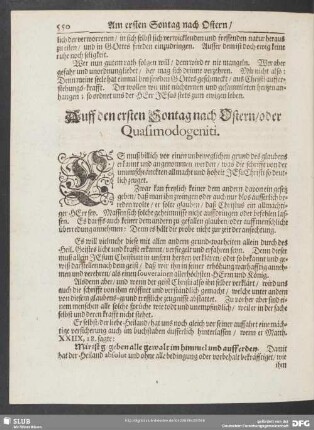 550 Am ersten Sontag nach Ostern /
lich der verworrenen / in sich selbst sich verwicklenden und fressenden natur heraus
zu eilen / und in GOttes frieden einzudringen. Ausser dem ist doch ewig keine
ruhe noch seligkeit.
Wer nun gutem rath folgen will / dem wird er nie mangeln. Wer aber
gefahr und unordnung liebet / der mag sich drinne vergehren. Mir nicht also:
Denn meine seele hat einmal den frieden Gottes geschmeckt / und Christi aufer-
stehungs-krafft. Der wollen wir mit nüchternen und gesammleten hertzen an-
hangen: so ordnet uns der HErr JEsus stets zum ewigen leben.
Auff den ersten Sontag nach Ostern / oder
Quasimodogeniti.
ES muß billich vor einen unbeweglichen grund des glaubens
erkannt und angenommen werden / was die schrifft von der
unumschränckten allmacht und hoheit JEsu Christi so deut-
lich zeuget.
Zwar kan freylich keiner dem andern davon ein gesetz
geben / daß man ihn zwingen oder auch nur bloß äusserlich be-
reden wolte / er solte glauben / daß Christus ein allmächti-
ger HErr sey. Massen sich solche geheimnisse nicht aufdringen oder befehlen las-
sen. Es darffs auch keiner dem andern zu gefallen glauben / oder aus menschliche
überredung annehmen: Denn es hält die probe nicht zur zeit der anfechtung.
Es will vielmehr diese mit allen andern grund-warheiten allein durch des
Heil. Geistes licht und krafft erkannt / versiegelt und erfahren seyn. Denn dieser
muß allein JEsum Christum in unsern hertzen verklären / oder so bekannt und ge-
wiß darstellen nach dem geist / daß wir ihn in seiner erhöhung warhafftig anneh-
men und verehren / als einen souverainen allerhöchsten HErrn und König.
Alsdenn aber / und wenn der geist Christi also ihn selber verklärt / wird uns
auch die schrifft von ihm eröffnet und verständlich gemacht / welche unter andern
von diesem glaubens-grund treffliche zeugnisse abstattet. Zuvorher aber sind ei-
nem menschen alle solche sprüche wie todt und unempfindlich / weil er in der sache
selbst und deren krafft nicht stehet.
Er selbst / der liebe Heiland / hat uns noch gleich vor seiner auffahrt eine mäch-
tige versicherung auch im buchstaben äusserlich hinterlassen / wenn er Matth.
XXIIX, 18. sagte:
Mir ist gegeben alle gewalt im himmel und auff erden. Damit
hat der Heiland absolut und ohne alle bedingung oder vorbehalt bekräfftiget / wie
ihm
SLUB
DFG